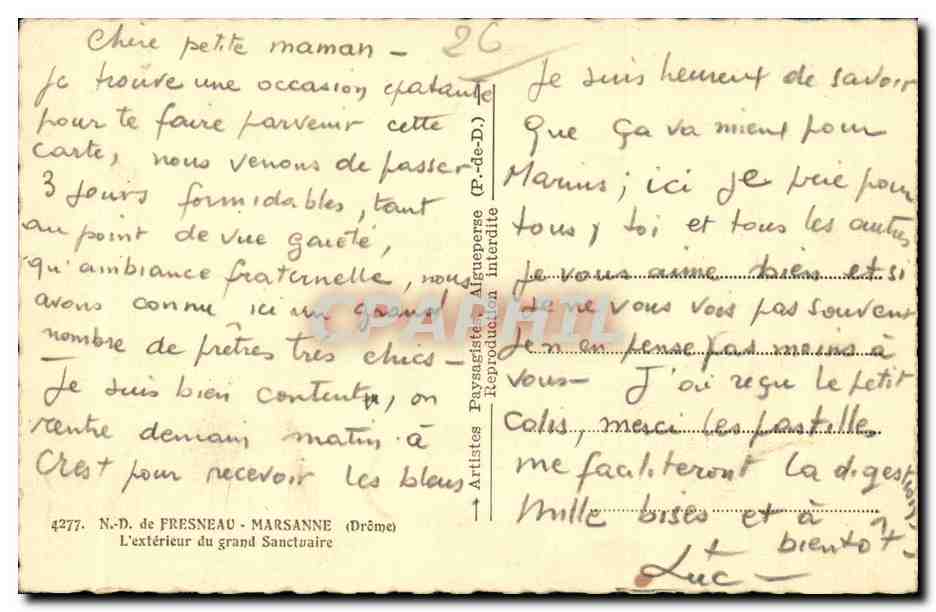 26
Chère petite maman -
Je trouve une occasion épatante
pour te faire parvenir cette
carte, nous venons de passer
3 jours formidables, tant
au point de vue gaieté,
qu'ambiance fraternelle, nous
avons connu ici un grand
nombre de prêtres très chics -
Je suis bien content, on
rentre demain matin à
Crest pour recevoir les bleus
4277. N.-D. de FRESNEAU - MARSANNE (Drôme)
L'extérieur du grand Sanctuaire
→ Artistes Paysagistes, Aigueperse (P.-de-D.)
Reproduction interdite
CPAPHIL
Je suis heureux de savoir
que ça va mieux pour
Marius ; ici je prie pour
tous, toi et tous les autres
Je vous aime bien et si
je ne vous vois pas souvent
Je n'en pense pas moins à
vous - J'ai reçu le petit
Colis, merci les pastilles
me faciliteront la digestion,
Mille bises et à
bientôt -
Luc -